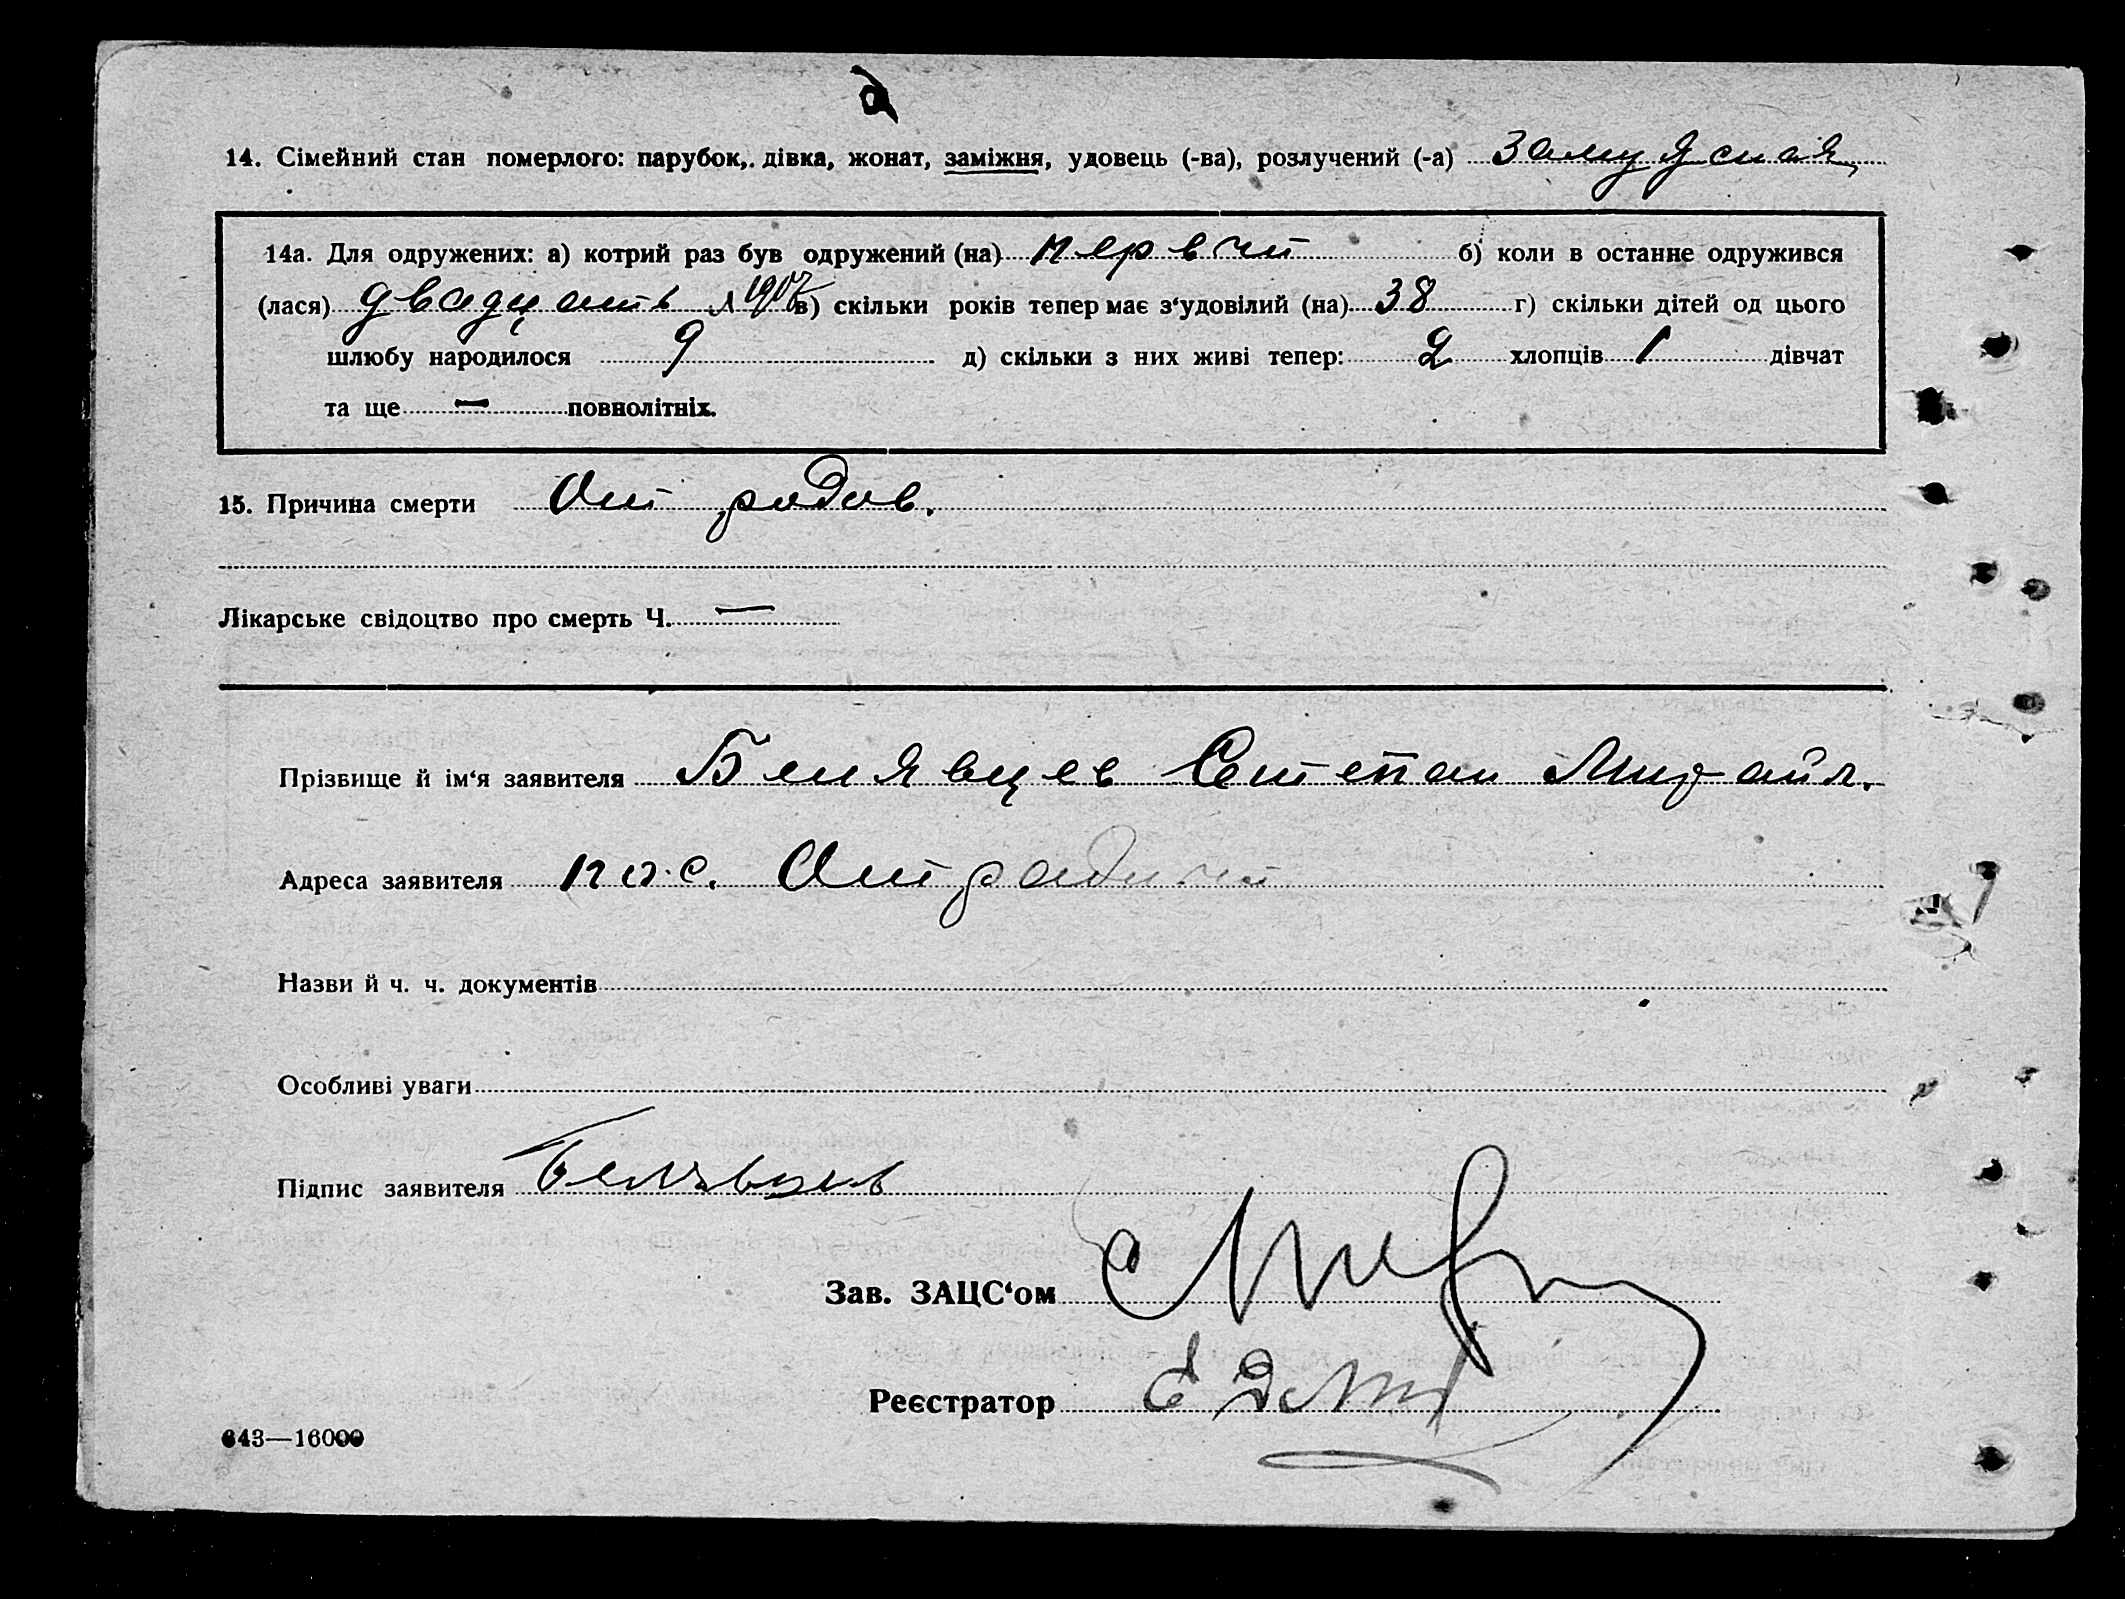 14. Сімейний стан померлого: парубок,. дівка, жонат, заміжня, удовець (-ва), розлучений (-а) замужная
14а. Для одружених: а) котрий раз був одружений (на) первый б) коли в останне одружився
(лася) двадцать л 1907 в) скільки років тепер має з'удовілий (на) 38 г) скільки дітей од цього
шлюбу народилося 9 д) скільки з них живі тепер: 2 хлопців 1 дівчат
та ще — повнолітніх.
15. Причина смерти От родов.
Лікарське свідоцтво про смерть Ч. —
Прізвище й ім'я заявителя Белявцев Степан Михайл.
Адреса заявителя пос. Отрадный
Назви й ч. ч. документів
Особливі уваги
Підпис заявителя Белявцев
Зав. ЗАЦС'ом
Реєстратор
643—16000